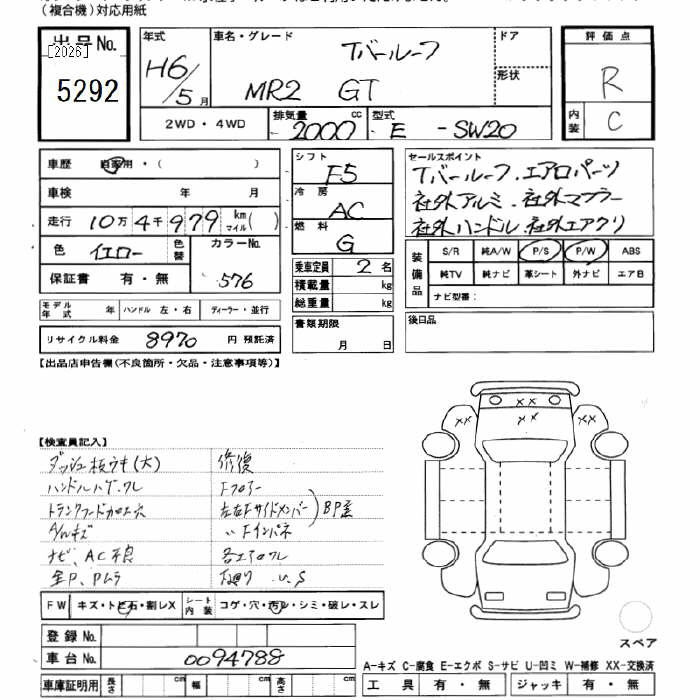 (複合機)対応用紙
出品No.
[2026]
5292
年式
H6/5月
車名・グレード
Tバールーフ
MR2 GT
ドア
形状
2WD・4WD
排気量
2000 cc
型式
E - SW20
評価点
R
内装
C
車歴 自家用・( )
車検 年 月
走行 10万4千979 km マイル( )
色 イエロー 色替
カラーNo.
576
保証書 有・無
モデル年式 年 ハンドル 左・右 ディーラー・並行
リサイクル料金 8970 円 預託済
シフト
F5
冷房
AC
燃料
G
乗車定員 2 名
積載量 kg
総重量 kg
書類期限
月 日
セールスポイント
Tバールーフ.エアロパーツ
社外アルミ.社外マフラー
社外ハンドル.社外エアクリ
装備品
S/R 純A/W P/S P/W ABS
純TV 純ナビ 革シート 外ナビ エアB
ナビ型番:
後日品
【出品店申告欄(不良箇所・欠品・注意事項等)】
【検査員記入】
ダッシュ板ウキ(大)
ハンドルハゲ.ワレ
トランクフード加工穴
A/Wキズ
ナビ、AC不良
全P、Pムラ
修復
Fフロアー
左右Fサイドメンバー
〃Fインパネ
BP歪
各エアロワレ
下廻り U、S
XX
XX
XX
XX
FW キズ・トビ石・割レX
シート内装 コゲ・穴・汚レ・シミ・破レ・スレ
登録No.
車台No. 0094788
車庫証明用 長さ cm 幅 cm 高さ cm
スペア
A-キズ C-腐食 E-エクボ S-サビ U-凹ミ W-補修 XX-交換済
工具 有・無 ジャッキ 有・無